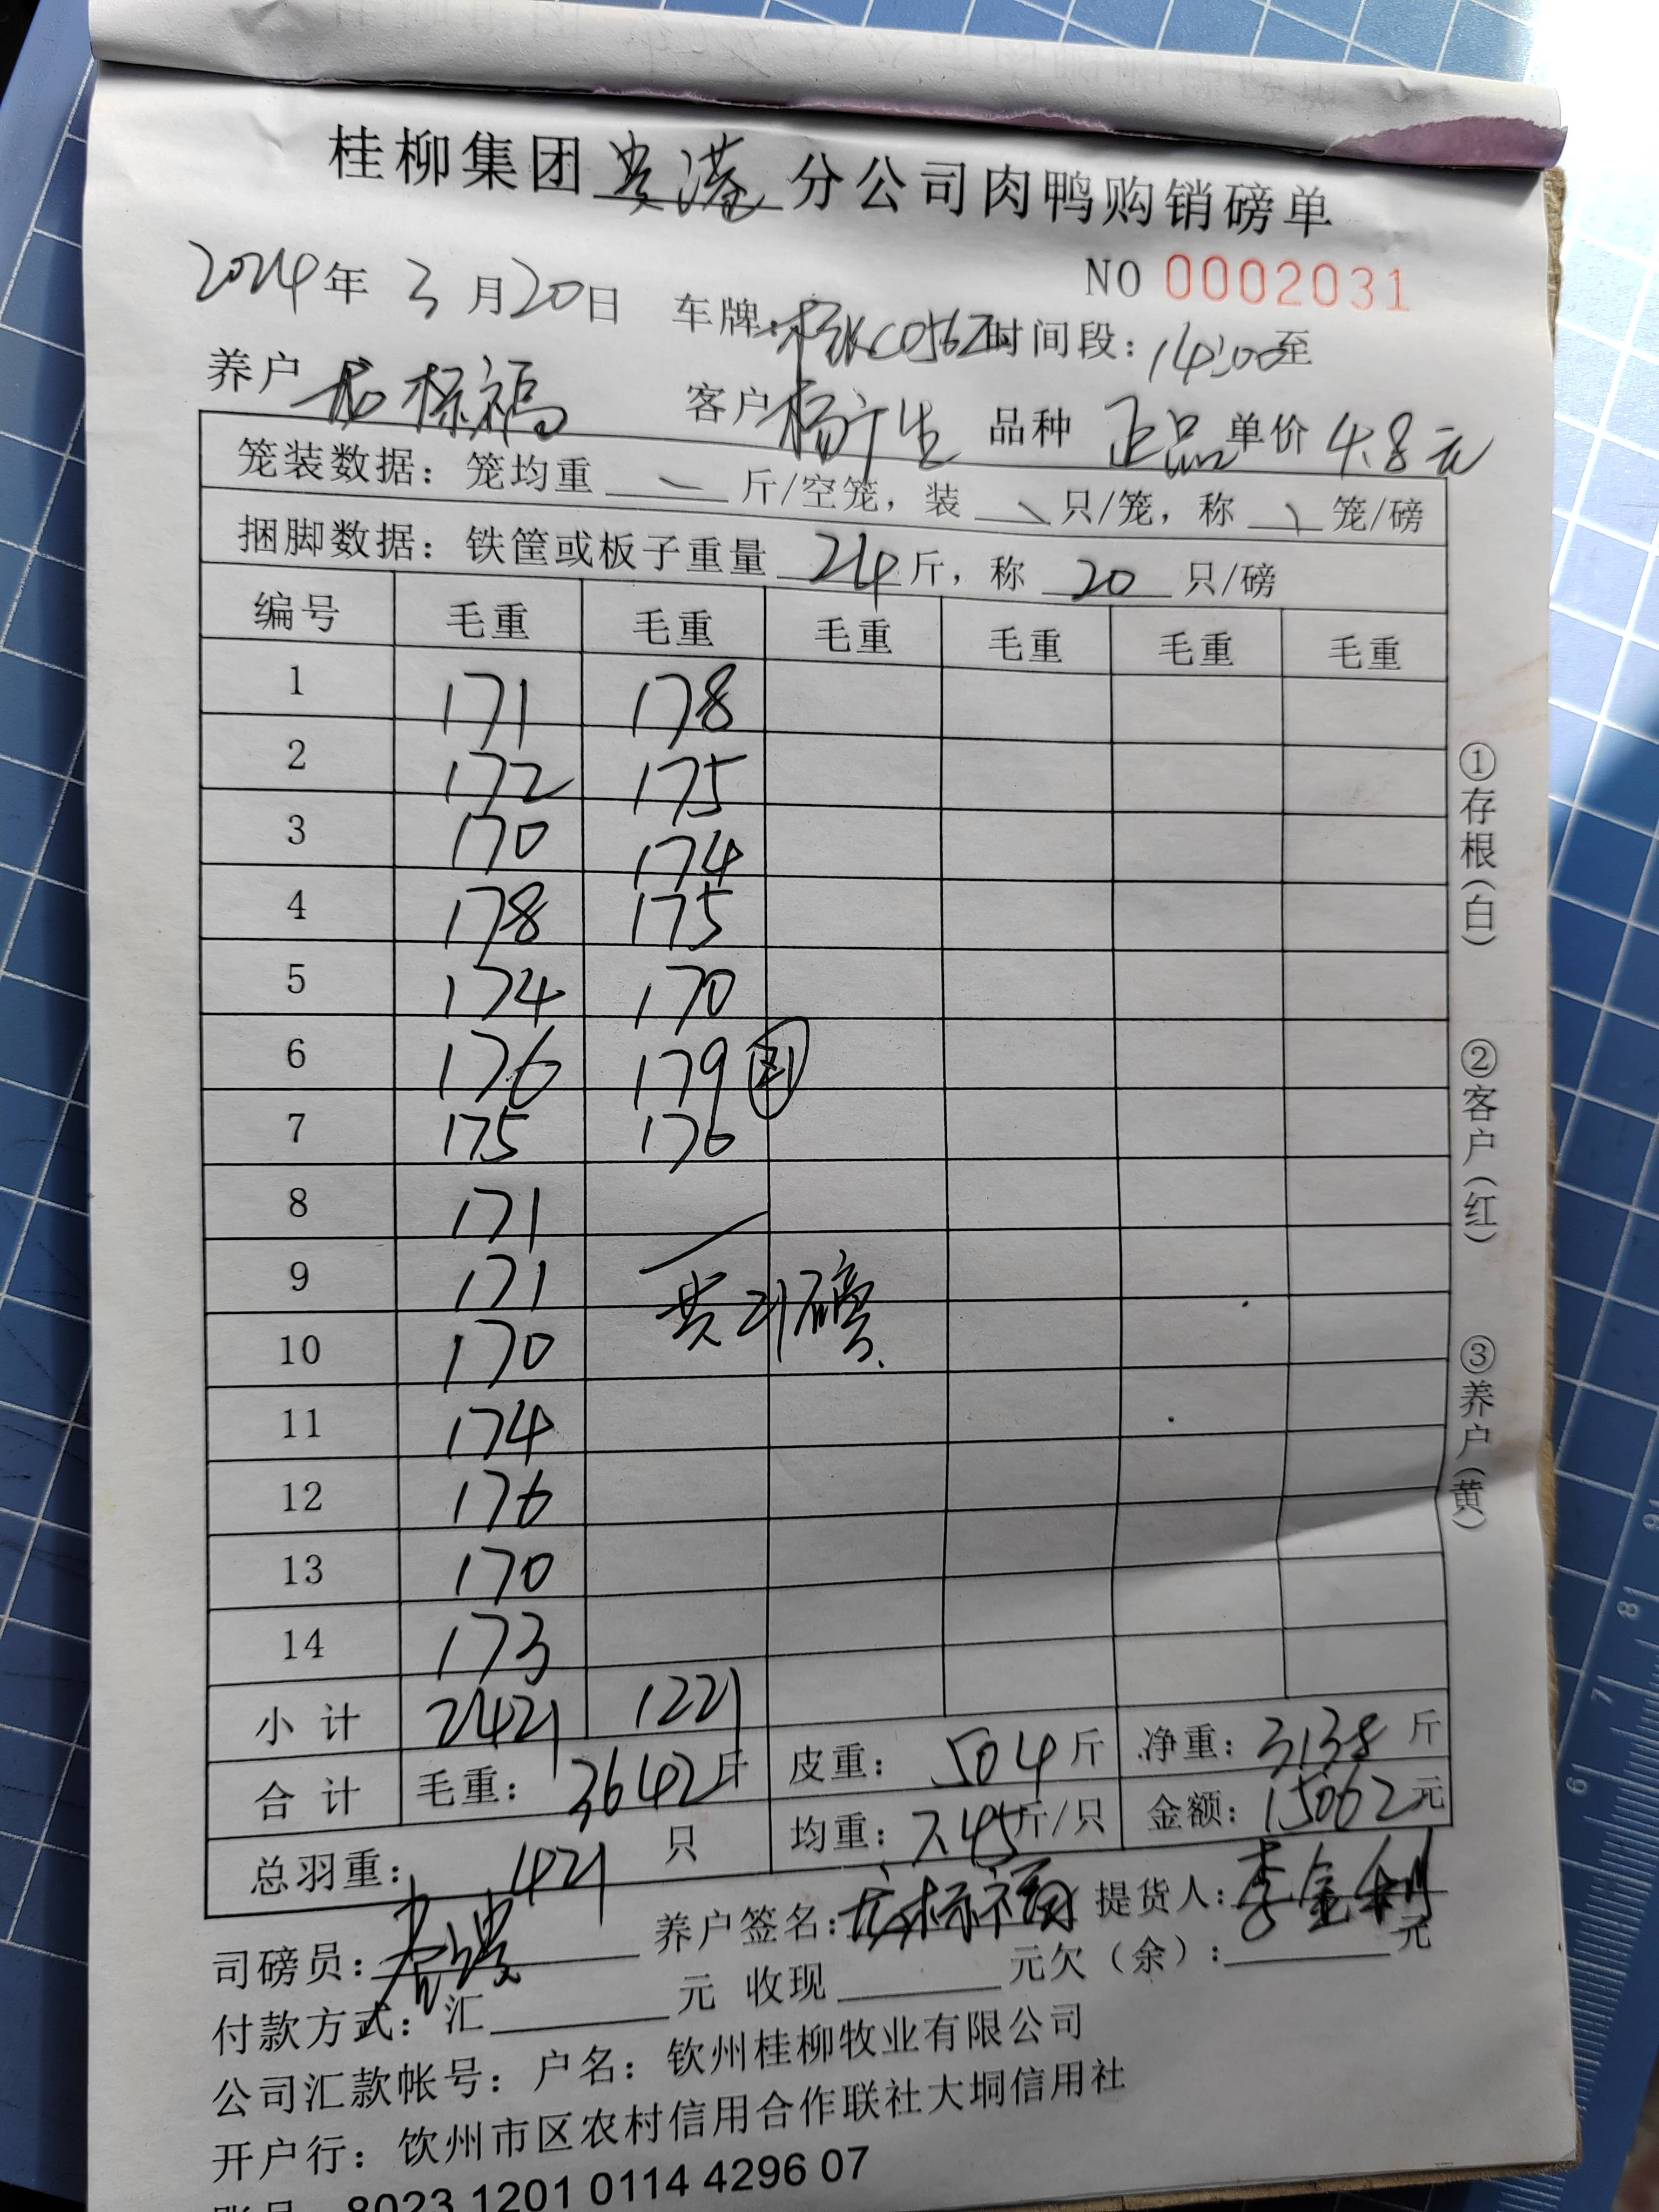 桂柳集团贵港分公司肉鸭购销磅单
NO 0002031
2024年 3 月20日 车牌: C0562 时间段: 14:00至
养户 龙标福 客户 杨广生 品种 正品 单价 4.8元
笼装数据: 笼均重 斤/空笼, 装 只/笼, 称 笼/磅
捆脚数据: 铁筐或板子重量 24斤, 称 20 只/磅
编号 毛重 毛重 毛重 毛重 毛重 毛重
1 171 178
2 172 175
3 170 174
4 178 175
5 174 170
6 176 179 21
7 175 176
8 171
9 171
共21磅
10 170
11 174
12 176
13 170
14 173
小计 2421 1221
合计 毛重: 3642斤 皮重: 504斤 净重: 3138斤
总羽重: 421 只 均重: 7.45斤/只 金额: 15062元
司磅员: 养户签名: 龙标福 提货人: 李金利
付款方式: 汇 元 收现 元欠(余): 元
公司汇款帐号: 户名: 钦州桂柳牧业有限公司
开户行: 钦州市区农村信用合作联社大垌信用社
账号 8023 1201 0114 4296 07
①存根(白)
②客户(红)
③养户(黄)
9
8
7
6